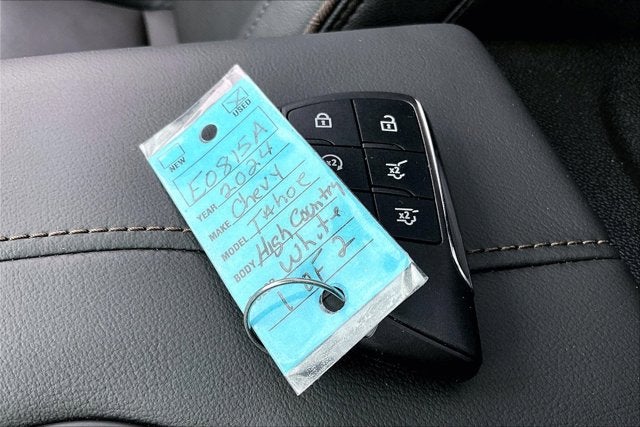 NEW
USED X
E0815A
YEAR 2024
MAKE Chevy
MODEL TAHOE
BODY High Country
White
1 of 2
x2
x2
x2